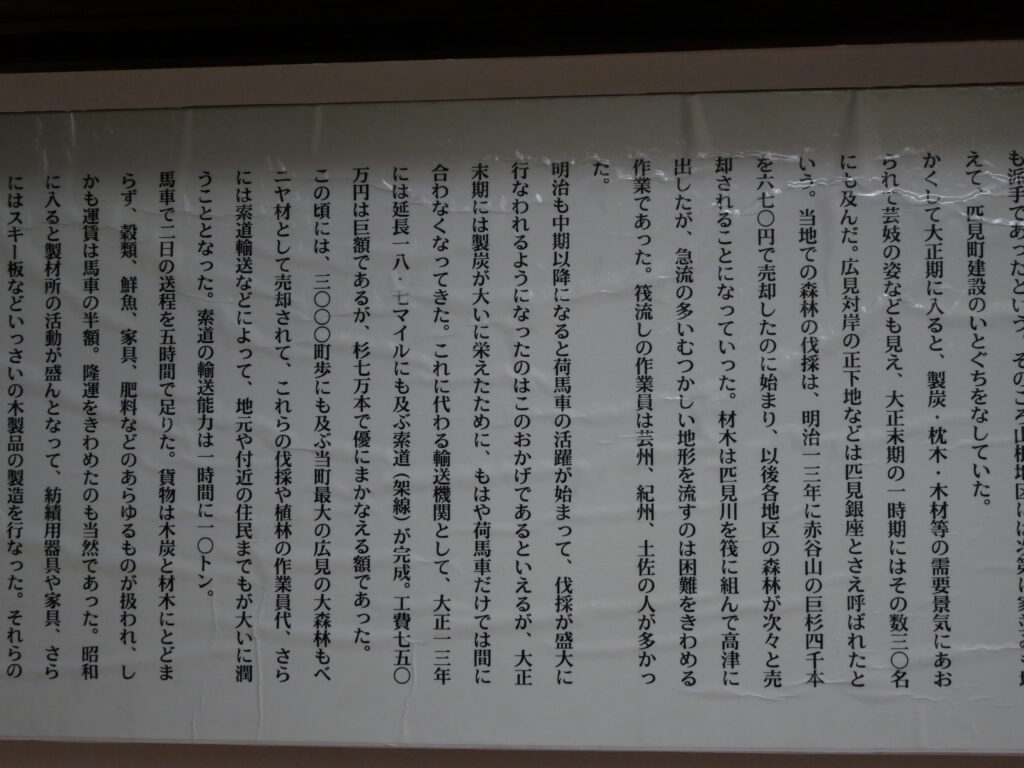 も派手であったという。そのころ山根地区には次第に家
えて、匹見町建設のいとぐちをなしていた。
かくして大正期に入ると、製炭・枕木・木材等の需要景気にあお
られて芸妓の姿なども見え、大正末期の一時期にはその数三〇名
にも及んだ。広見対岸の正下地などは匹見銀座とさえ呼ばれたと
いう。当地での森林の伐採は、明治一三年に赤谷山の巨杉四千本
を六七〇円で売却したのに始まり、以後各地区の森林が次々と売
却されることになっていった。材木は匹見川を筏に組んで高津に
出したが、急流の多いむつかしい地形を流すのは困難をきわめる
作業であった。筏流しの作業員は芸州、紀州、土佐の人が多かっ
た。
明治も中期以降になると荷馬車の活躍が始まって、伐採が盛大に
行なわれるようになったのはこのおかげであるといえるが、大正
末期には製炭が大いに栄えたために、もはや荷馬車だけでは間に
合わなくなってきた。これに代わる輸送機関として、大正一三年
には延長一八・七マイルにも及ぶ索道(架線)が完成。工費七五〇
万円は巨額であるが、杉七万本で優にまかなえる額であった。
この頃には、三〇〇〇町歩にも及ぶ当町最大の広見の大森林もベ
ニヤ材として売却されて、これらの伐採や植林の作業員代、さら
には索道輸送などによって、地元や付近の住民までもが大いに潤
うこととなった。索道の輸送能力は一時間に一〇トン。
馬車で二日の送程を五時間で足りた。貨物は木炭と材木にとどま
らず、穀類、鮮魚、家具、肥料などのあらゆるものが扱われ、し
かも運賃は馬車の半額。隆運をきわめたのも当然であった。昭和
に入ると製材所の活動が盛んとなって、紡績用器具や家具、さら
にはスキー板などといっさいの木製品の製造を行なった。それらの